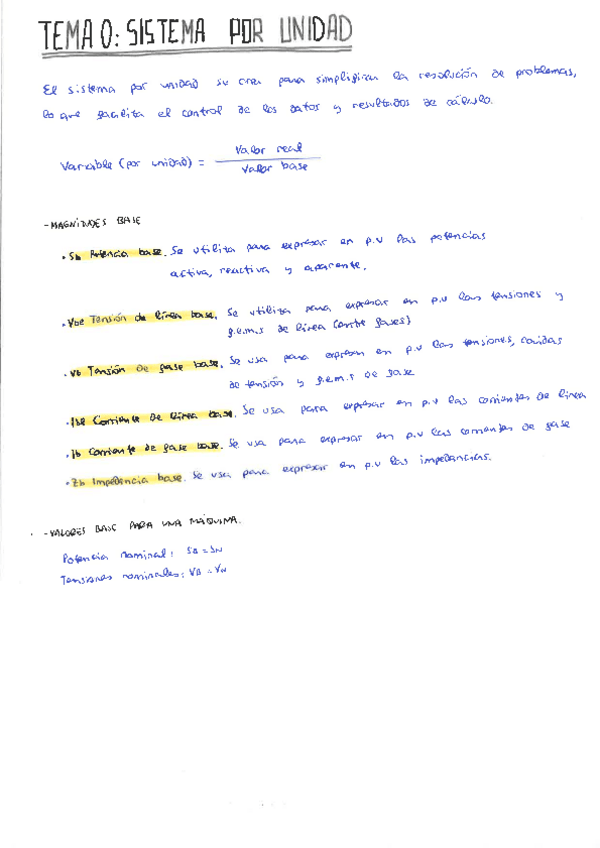 TEMA 0: SISTEMA POR UNIDAD
El sistema por unidad se crea para simplificar la resolución de problemas,
lo que facilita el control de los datos y resultados de cálculo.
Variable (por unidad) = Valor real / Valor base
- MAGNITUDES BASE
• Sb Potencia base. Se utiliza para expresar en p.u las potencias
activa, reactiva y aparente.
• Vbl Tensión de línea base. Se utiliza para expresar en p.u las tensiones y
f.e.m.s de línea (entre fases)
• Vb Tensión de fase base. Se usa para expresar en p.u las tensiones, caídas
de tensión y f.e.m.s de fase
• Ibl Corriente de línea base. Se usa para expresar en p.u las corrientes de línea
• Ib Corriente de fase base. Se usa para expresar en p.u las corrientes de fase
• Zb Impedancia base. Se usa para expresar en p.u las impedancias.
- VALORES BASE PARA UNA MÁQUINA.
Potencia nominal: SB = SN
Tensiones nominales: VB = VN